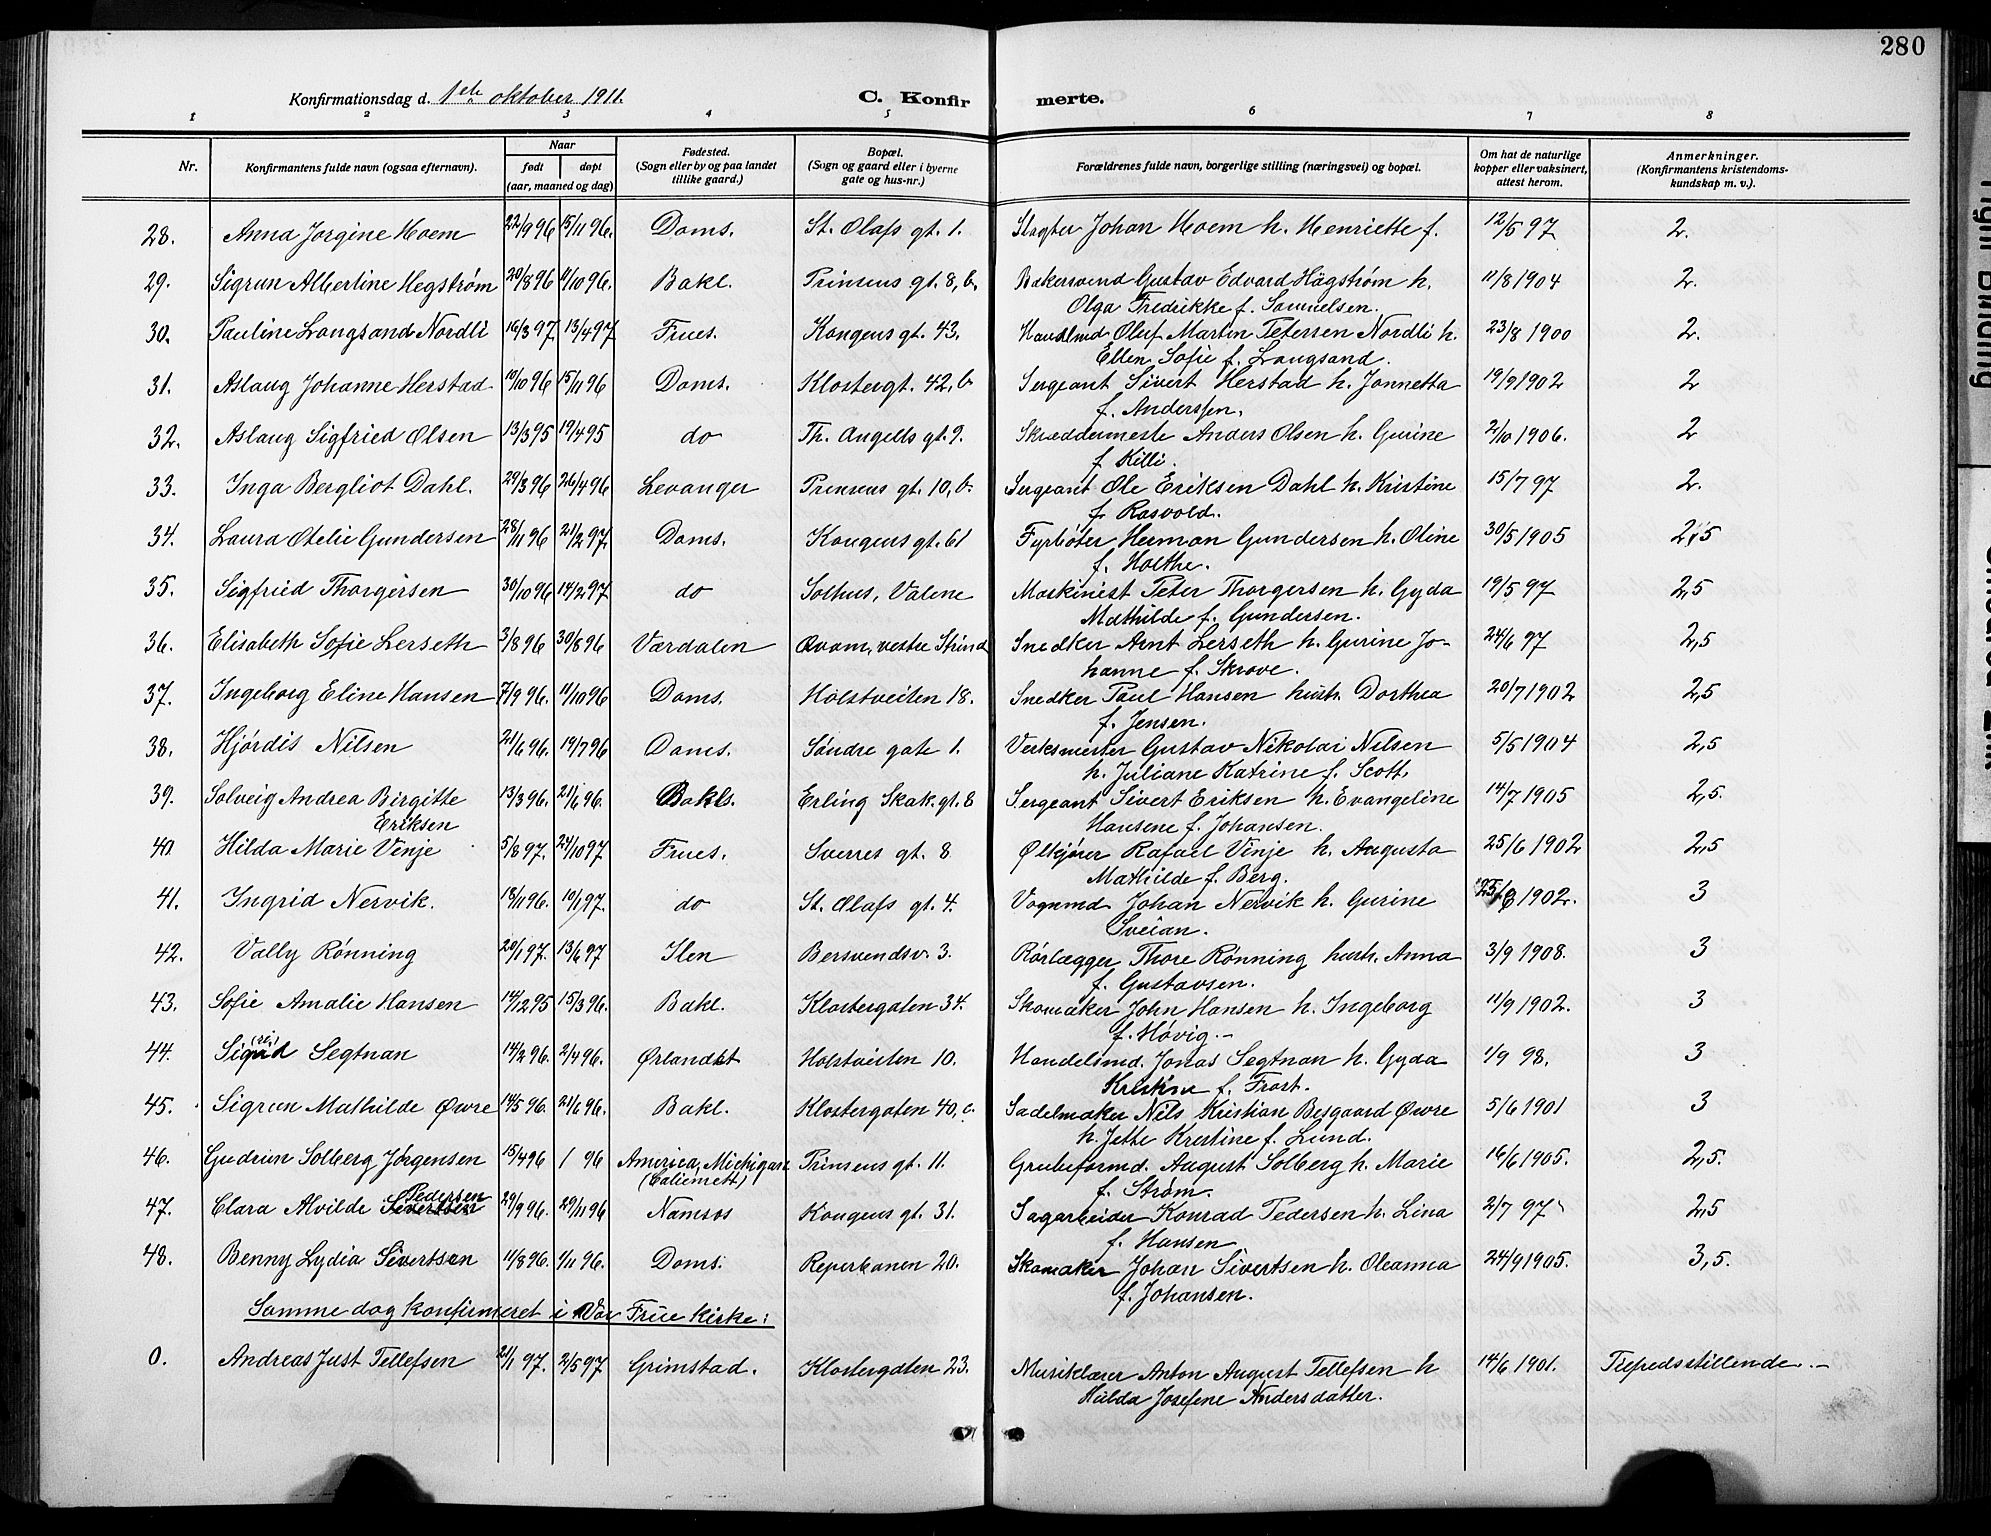 280
Konfirmationsdag d. 1ste oktober 1911. C. Konfirmerte.
1 2 3 4 5 6 7 8
Nr. Konfirmantens fulde navn (ogsaa efternavn). Naar født døpt (aar, maaned og dag) Fødested. (Sogn eller by og paa landet tillike gaard.) Bopæl. (Sogn og gaard eller i byerne gate og hus-nr.) Forældrenes fulde navn, borgerlige stilling (næringsvei) og bopæl. Om hat de naturlige kopper eller vaksinert, attest herom. Anmerkninger. (Konfirmantens kristendomskundskap m. v.).
28. Anna Jorgine Hoem 22/9 96 15/11 96. Doms. St. Olafs gt. 1. Slagter Johan Hoem h. Henriette f. 12/5 97 2.
29. Sigrun Albertine Hegstrøm 20/8 96 11/10 96. Bakl. Prinsens gt. 8, b. Bakersvend Gustav Edvard Hägstrøm h. 11/8 1904 2.
Olga Fredrikke f. Samuelsen.
30. Pauline Langsand Nordli 16/3 97 13/4 97 Frues. Kongens gt. 43. Handlmd Oluf Martin Petersen Nordli h. 23/8 1900 2.
Ellen Sofie f. Langsand.
31. Aslaug Johanne Herstad 10/10 96 15/11 96 Doms. Klostergt. 42, b. Sergeant Sivert Herstad h. Jonnetta 19/9 1902 2
f. Anderssen.
32. Aslaug Sigfried Olsen 13/3 95 19/4 95 do Th. Angells gt. 9. Skræddermeste Anders Olsen h. Gurine 2/10 1906. 2
f. Killi.
33. Inga Bergliot Dahl. 29/3 96 26/4 96 Levanger Prinsens gt. 10, b. Sergeant Ole Eriksen Dahl h. Kristine 15/7 97 2.
f. Rasvold.
34. Laura Otelie Gundersen 28/11 96 21/2 97. Doms. Kongens gt. 61 Fyrbøter Herman Gundersen h. Oline 30/5 1905 2,5
f. Holthe.
35. Sigfried Thorgersen 30/10 96 14/2 97 do Solhus, Valene Maskinist Peter Thorgersen h. Gyda 19/5 97 2,5
Mathilde f. Gundersen.
36. Elisabeth Sofie Lerseth 3/8 96 30/8 96 Værdalen Qvam, vestre Strind Snedker Arnt Lerseth h. Gurine Jo- 24/6 97 2,5
hanne f. Skrove.
37. Ingeborg Eline Hansen 7/9 96. 11/10 96 Doms. Holstveiten 18. Snedker Paul Hansen hustr. Dorthea 20/7 1902 2,5
f. Jensen.
38. Hjørdis Nilsen 21/6 96. 19/7 96 Doms. Søndre gate 1. Verksmester Gustav Nikolai Nilsen 5/5 1904 2,5
h. Juliane Katrine f. Scott.
39. Solveig Andrea Birgitte 13/3 96. 21/6 96. Bakls. Erling Skak. gt. 8 Sergeant Sivert Eriksen h. Evangeline 14/7 1905 2,5.
Eriksen Hansene f. Johansen.
40. Hilda Marie Venje 5/8 97. 24/10 97 Frues. Sverres gt. 8 Ølkjører Rafael Vinje h. Augusta 25/6 1902 2,5
Mathilde f. Berg.
41. Ingrid Nervik. 13/11 96. 10/1 97. do St. Olafs gt. 4. Vognmd Johan Nervik h. Gurine 25/8 1902. 3
Sveian.
42. Vally Rønning 20/1 97. 13/6 97 Ilen Bersvendsv. 3. Rørlægger Thore Rønning hustr. Anna 3/9 1908. 3
f. Gustavsen.
43. Sofie Amalie Hansen 14/12 95 15/3 96. Bakl. Klostergaten 34. Skomaker John Hansen h. Ingeborg 11/9 1902. 3
f. Høvig.–
44. Sigrid Segtnan 14/2 96. 2/4 96. Ørlandet Holstveiten 10. Handelsmd. Jonas Segtnan h. Gyda 1/9 98. 3
Kristine f. Frost.
45. Sigrun Mathilde Øvre 14/5 96. 21/6 96. Bakl. Klostergaten 40, c. Sadelmaker Nils Kristian Besgaard Øvre 5/6 1901 3
h. Jette Kristine f. Lund.
46. Gudrun Solberg Jørgensen 15/4 96 / 96 America, Michigan Prinsens gt. 11. Grubeformd. August Solberg h. Marie 16/6 1905. 2,5.
(Caliemett) f. Strøm.
47. Clara Alvilde Sivertsen Pedersen 29/9 96. 29/11 96 Namsos Kongens gt. 31. Sagarbeider Konrad Pedersen h. Lina 2/7 97 2,5
f. Hansen
48. Benny Lydia Sivertsen 11/8 96. 1/11 96. Doms. Reperbanen 20. Skomaker Johan Sivertsen h. Oleanna 24/9 1905. 3,5.
f. Johansen.
Samme dag konfirmeret i Vor Frue kirke:
0. Andreas Just Tellefsen 21/1 97. 2/5 97 Grimstad. Klostergaten 23. Musiklærer Anton August Tellefsen h 14/6 1901. Tilfredsstillende.–
Hulda Josefine Andersdatter.